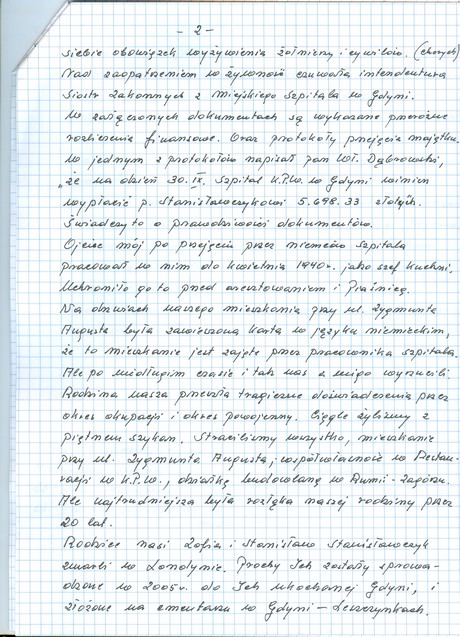 - 2 -
siebie obowiązek wyżywienia żołnierzy i cywilów. (chorych)
Nad zaopatrzeniem w żywność czuwała intendentura
Sióstr Zakonnych z Miejskiego Szpitala w Gdyni.
W załączonych dokumentach są wykazane przeróżne
rozliczenia finansowe. Oraz protokoły przejęcia majątku.
W jednym z protokołów napisał pan Wł. Dąbrowski,
"że na dzień 30.IX. Szpital K.P.W. w Gdyni winien
wypłacić p. Stanisławczykowi 5.698.33 złotych.
Świadczy to o prawdziwości dokumentów.
Ojciec mój po przejęciu przez niemców Szpitala
pracował w nim do kwietnia 1940r. jako szef kuchni.
Uchroniło go to przed aresztowaniem i Piaśnicą.
Na drzwiach naszego mieszkania przy ul. Zygmunta
Augusta była zawieszona karta w języku niemieckim,
że to mieszkanie jest zajęte przez pracownika szpitala.
Ale po niedługim czasie i tak nas z niego wyrzucili.
Rodzina nasza przeszła tragiczne doświadczenia przez
okres okupacji i okres powojenny. Ciągle żyliśmy z
piętnem szykan. Straciliśmy wszystko, mieszkanie
przy ul. Zygmunta Augusta, współwłasność w Restau-
racji w K.P.W., działkę budowlaną w Rumii-Zagórzu.
Ale najtrudniejsza była rozłąka naszej rodziny przez
20 lat.
Rodzice nasi Zofia i Stanisław Stanisławczyk
zmarli w Londynie. Prochy Ich zostały sprowa-
dzone w 2005r. do Ich ukochanej Gdyni, i
złożone na cmentarzu w Gdyni - Leszczynkach.